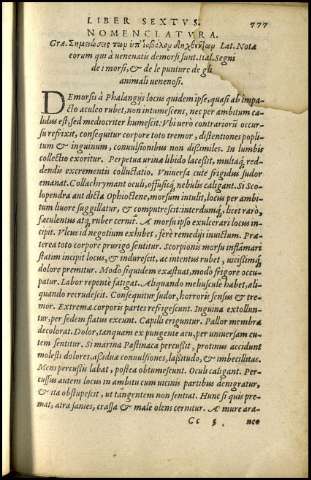 LIBER SEXTVS. 777
NOMENCLATVRA.
Græ. Σημειώσεις τῶν ὑπ' ἰοβόλων Lat. Notæ
eorum qui à uenenatis demorsi sunt. Ital. Segni
de i morsi, & de le punture de gli
animali uenenosi.
DEmorsis à Phalangijs locus quidem ipse, quasi ab impa-
cto aculeo rubet, non intumescens, nec per ambitum ca-
lidus est, sed mediocriter humescit. Vbi uero contrarorij occur-
su refrixit, consequitur corpore toto tremor, distentiones popli-
tum & inguinum, conuulsionibus non dissimiles. In lumbis
collectio exoritur. Perpetua urinã libido lacessit, multaq; red-
dendis excrementis colluctatio. Vniuersa cute frigidus sudor
emanat. Collachrymant oculi, offusiq; nebulis caligant. Si Sco-
lopendra aut dicta Ophioctene, morsum intulit, locus per ambi-
tum liuore suggillatur, & computrescit: interdumq;, licet rarò,
fæculentus atq; ruber cernitur. A morsu ipso exulcerari locus in-
cipit. Vlcus id negotium exhibet, ferè remedijs inuictum. Præ-
terea toto corpore prurigo sentitur. Scorpionis morsu inflãmari
statim incipit locus, & indurescit, ac intentus rubet, uicissimq;
dolore premitur. Modò siquidem exæstuat, modò frigore occu-
patur. Labor repentè fatigat. Aliquando meliuscule habet, ali-
quando recrudescit. Consequitur sudor, horroris sensus & tre-
mor. Extrema corporis partes refrigescunt. Inguina extollun-
tur, per sedem flatus exeunt. Capilli eriguntur. Pallor membra
decolorat. Dolor, tanquam ex pungente acu, per uniuersam cu-
tem sentitur. Si marina Pastinaca percussit, protinus accidunt
molesti dolores, assiduæ conuulsiones, lassitudo, & imbecilitas.
Mens percussis labat, postea obtumescunt. Oculi caligant. Per-
cussus autem locus in ambitu cum uicinis partibus denigratur,
& ita obstupescit, ut tangentem non sentiat. Hunc si quis pre-
mat, atra sanies, crassa & male olens cernitur. A mure ara-
CC 5 neo